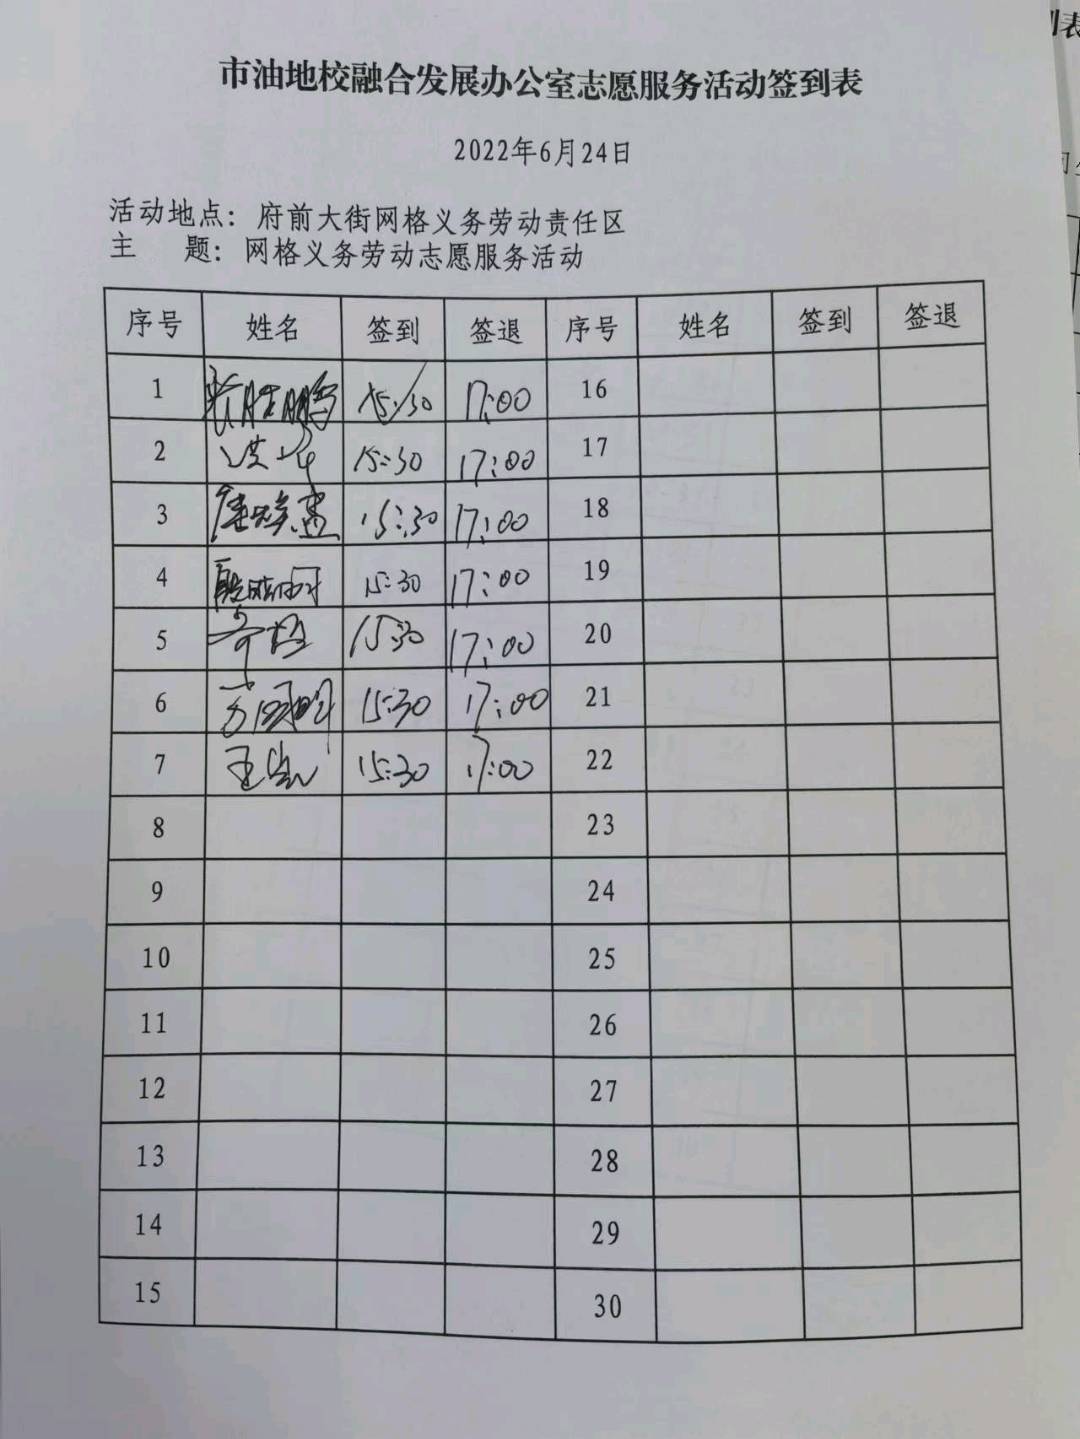 市油地校融合发展办公室志愿服务活动签到表
2022年6月24日
活动地点：府前大街网格义务劳动责任区
主 题：网格义务劳动志愿服务活动
序号 姓名 签到 签退 序号 姓名 签到 签退
1 15:30 17:00 16
2 15:30 17:00 17
3 15:30 17:00 18
4 15:30 17:00 19
5 15:30 17:00 20
6 15:30 17:00 21
7 15:30 17:00 22
8 23
9 24
10 25
11 26
12 27
13 28
14 29
15 30